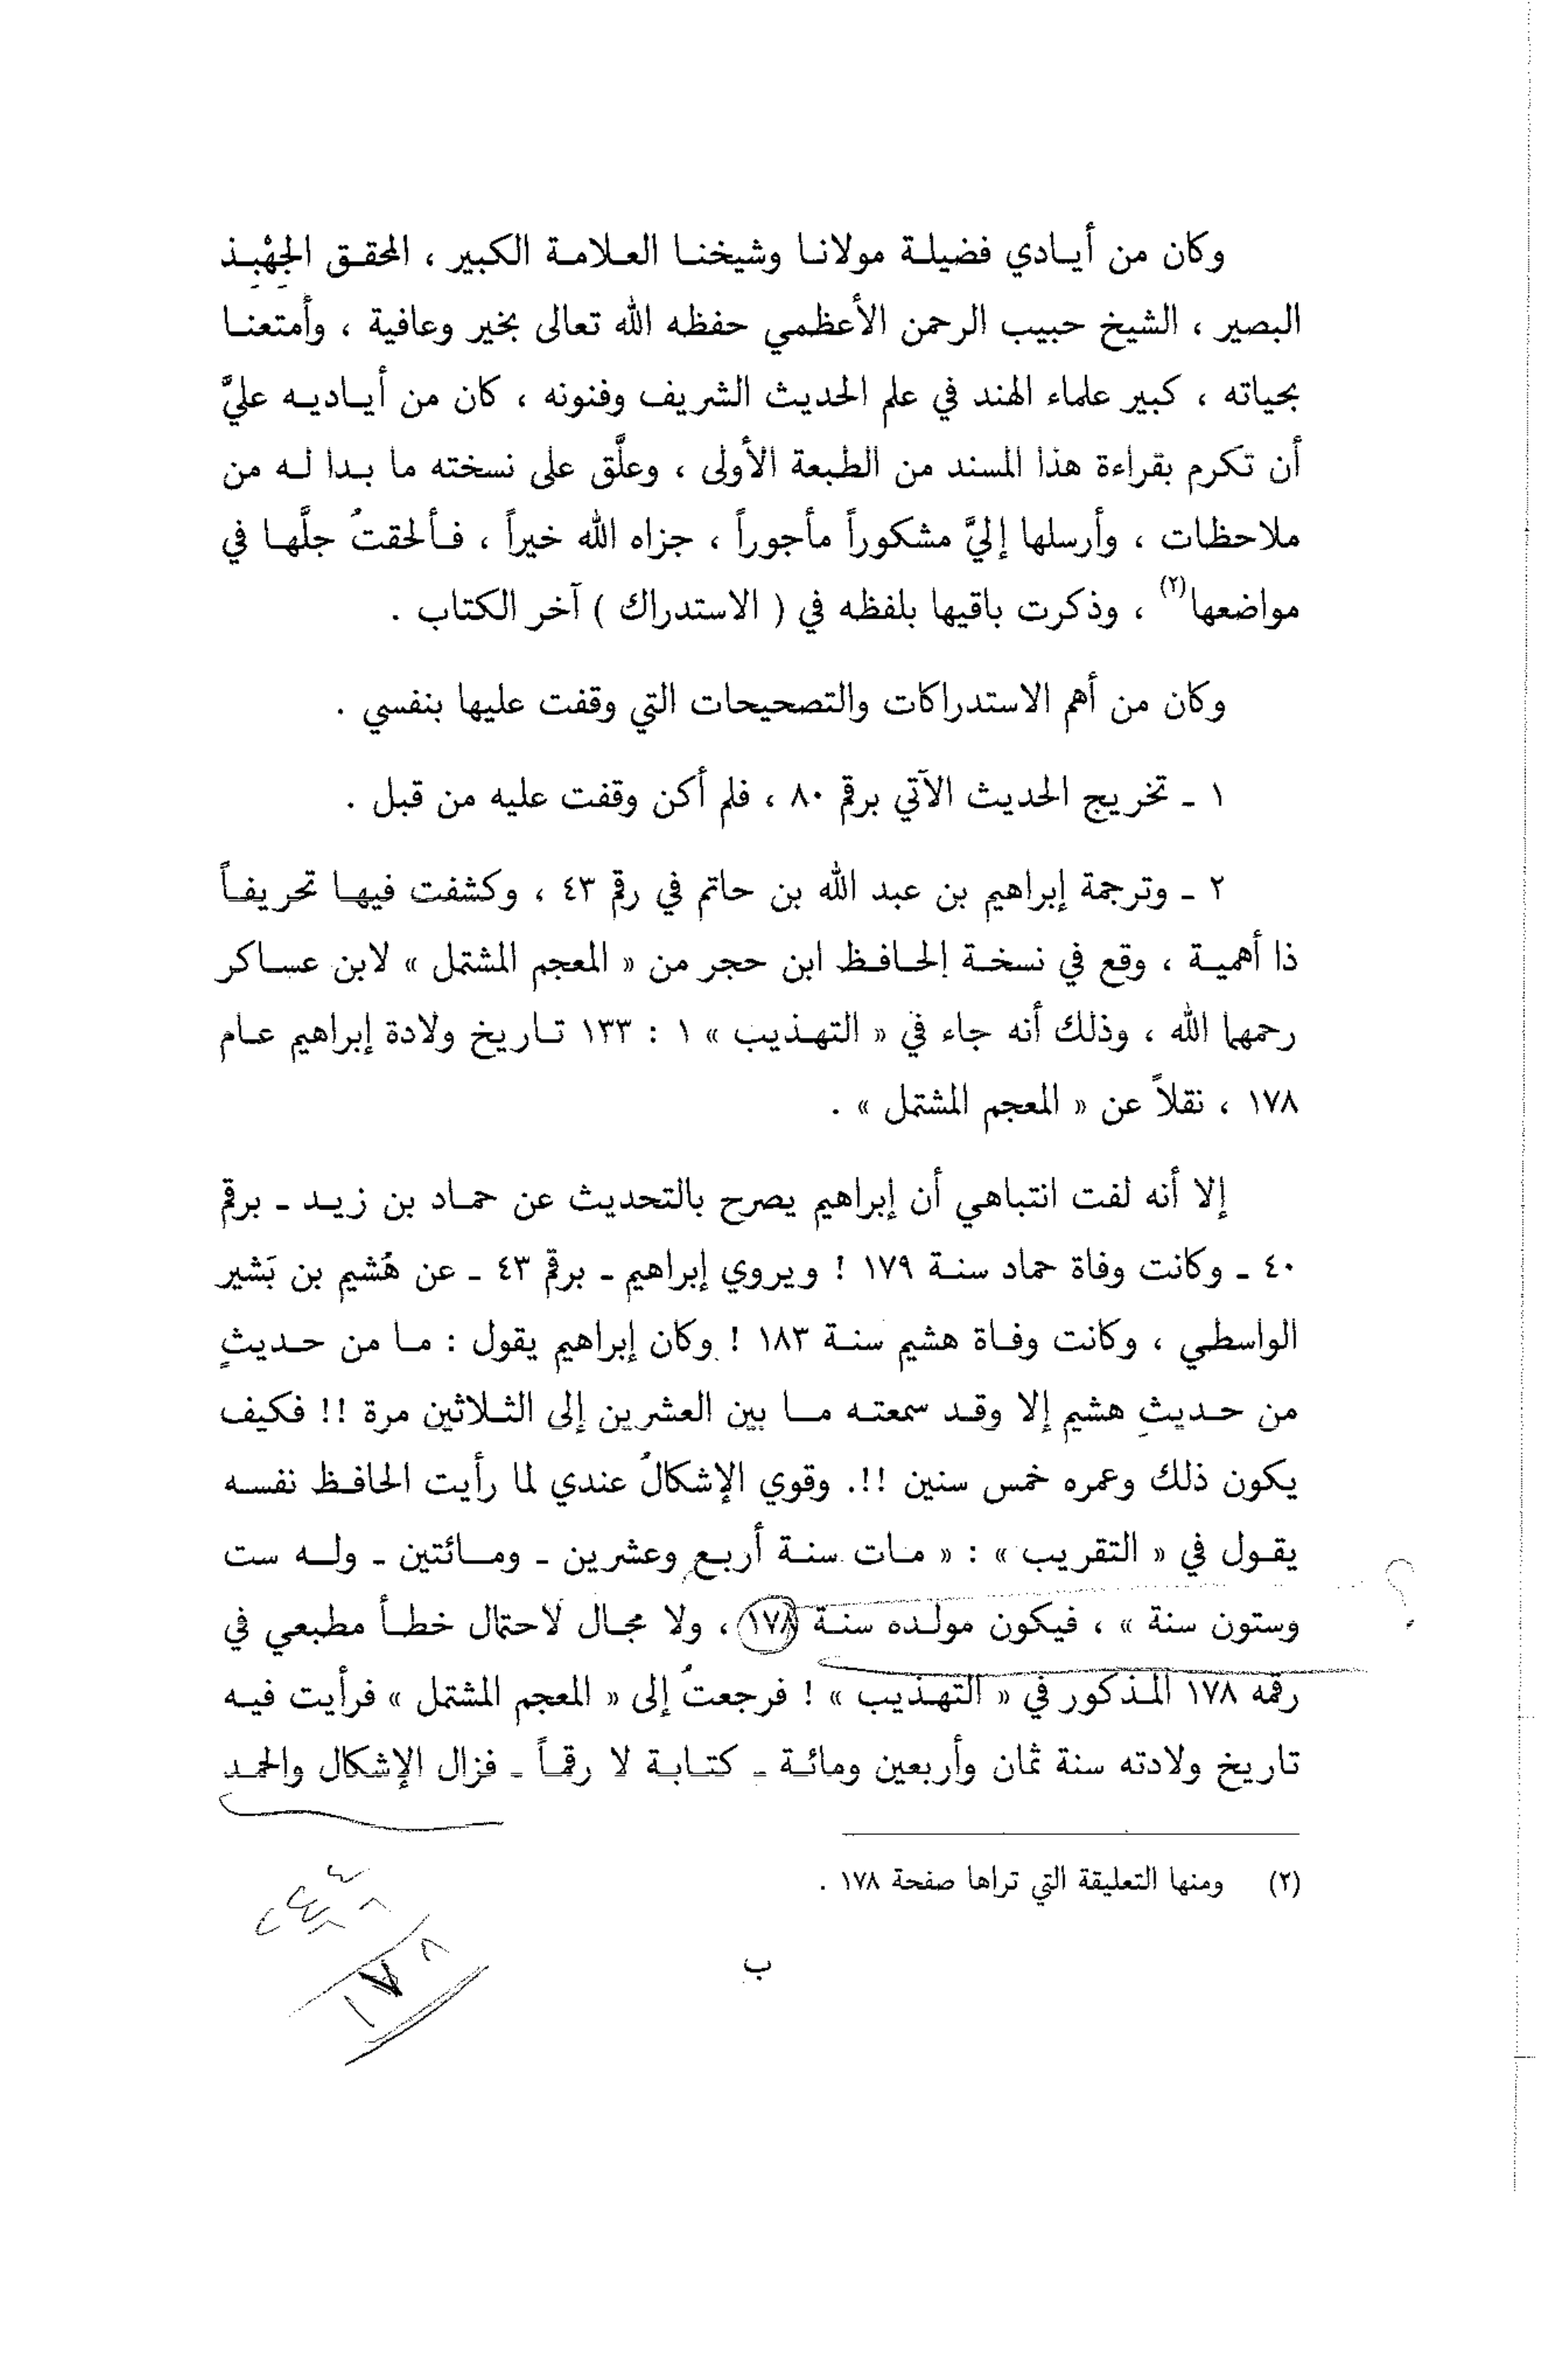 وكان من أيادي فضيلة مولانا وشيخنا العلامة الكبير ، المحقق الجِهْبِذ
البصير ، الشيخ حبيب الرحمن الأعظمي حفظه الله تعالى بخير وعافية ، وأمتعنا
بحياته ، كبير علماء الهند في علم الحديث الشريف وفنونه ، كان من أياديه عليَّ
أن تكرم بقراءة هذا المسند من الطبعة الأولى ، وعلَّق على نسخته ما بدا له من
ملاحظات ، وأرسلها إليَّ مشكوراً مأجوراً ، جزاه الله خيراً ، فألحقتُ جلَّها في
مواضعها(٢) ، وذكرت باقيها بلفظه في ( الاستدراك ) آخر الكتاب .
وكان من أهم الاستدراكات والتصحيحات التي وقفت عليها بنفسي .
١ ـ تخريج الحديث الآتي برقم ٨٠ ، فلم أكن وقفت عليه من قبل .
٢ ـ وترجمة إبراهيم بن عبد الله بن حاتم في رقم ٤٣ ، وكشفت فيها تحريفاً
ذا أهمية ، وقع في نسخة الحافظ ابن حجر من « المعجم المشتمل » لابن عساكر
رحمهما الله ، وذلك أنه جاء في « التهذيب » ١ : ١٣٣ تاريخ ولادة إبراهيم عام
١٧٨ ، نقلاً عن « المعجم المشتمل » .
إلا أنه لفت انتباهي أن إبراهيم يصرح بالتحديث عن حماد بن زيد ـ برقم
٤٠ ـ وكانت وفاة حماد سنة ١٧٩ ! ويروي إبراهيم ـ برقم ٤٣ ـ عن هُشيم بن بَشير
الواسطي ، وكانت وفاة هشيم سنة ١٨٣ ! وكان إبراهيم يقول : ما من حديثٍ
من حديثِ هشيم إلا وقد سمعته ما بين العشرين إلى الثلاثين مرة !! فكيف
يكون ذلك وعمره خمس سنين !!. وقوي الإشكالُ عندي لما رأيت الحافظ نفسه
يقول في « التقريب » : « مات سنة أربع وعشرين ـ ومائتين ـ وله ست
وستون سنة » ، فيكون مولده سنة ١٧٨ ، ولا مجال لاحتمال خطأ مطبعي في
رقمه ١٧٨ المذكور في « التهذيب » ! فرجعتُ إلى « المعجم المشتمل » فرأيت فيه
تاريخ ولادته سنة ثمان وأربعين ومائة ـ كتابة لا رقماً ـ فزال الإشكال والحمد
(٢) ومنها التعليقة التي تراها صفحة ١٧٨ .
ب
١٧٨